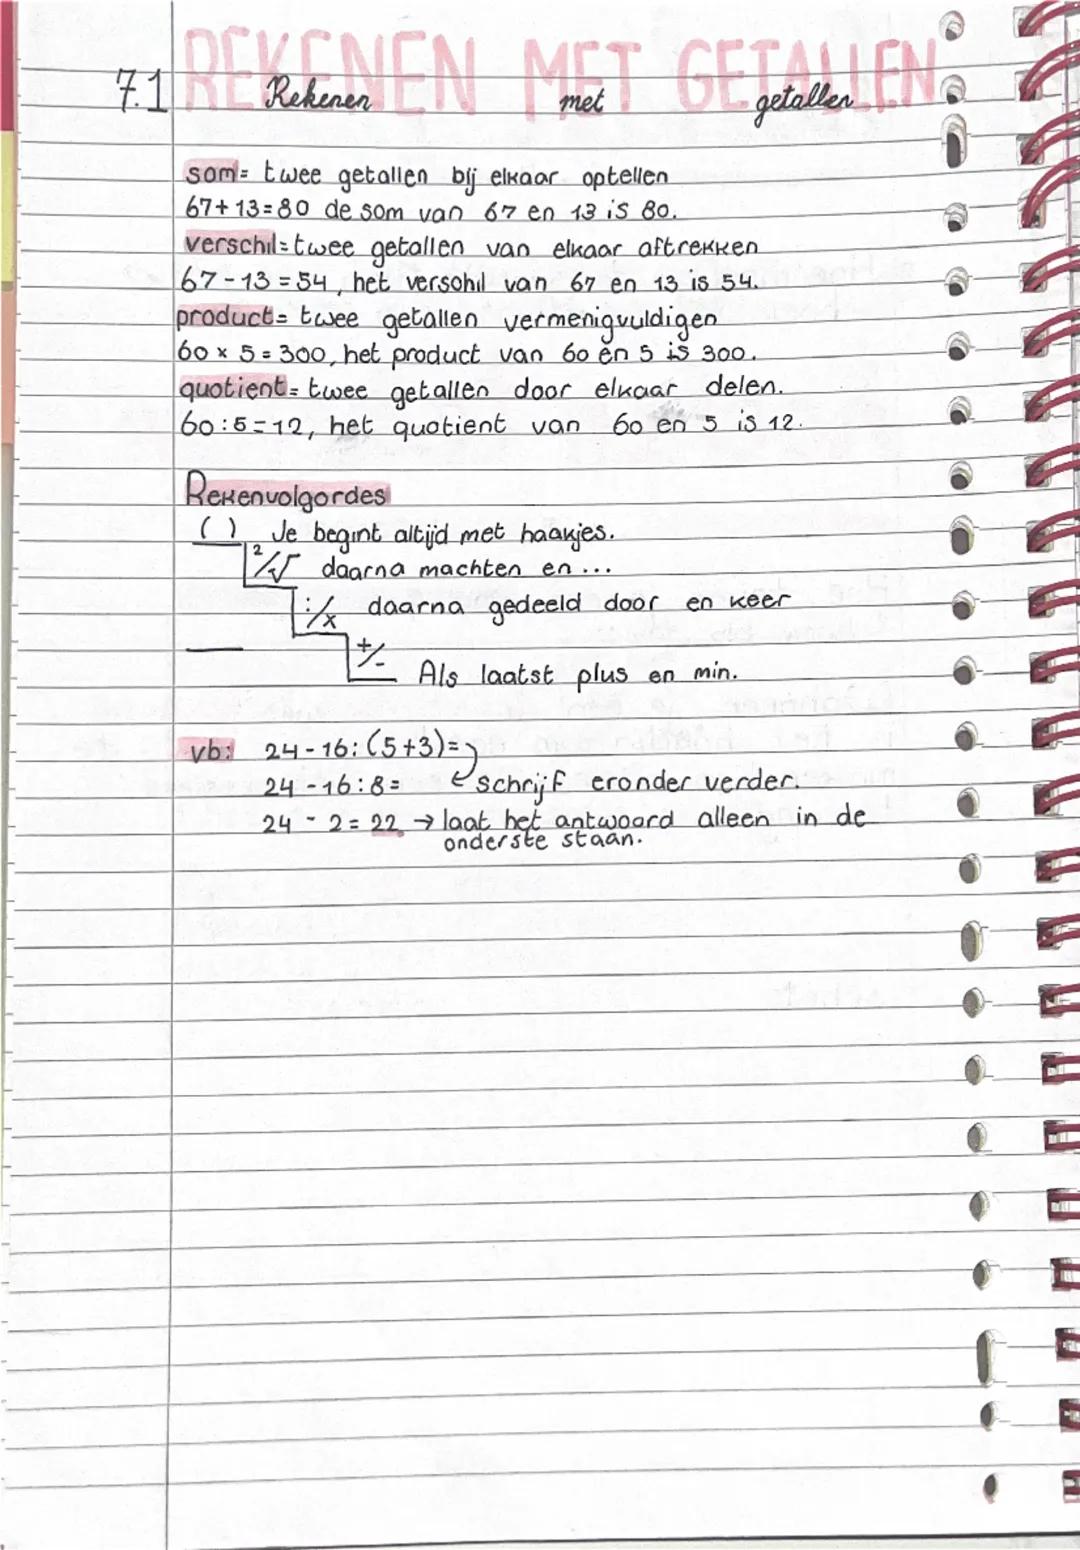 REKENEN MET GETALLEN
7.1 Rekenen met getallen
som= twee getallen bij elkaar optellen
67+13=80 de som van 67 en 13 is 80.
verschil=twee getallen van elkaar aftrekken
67-13=54, het verschil van 67 en 13 is 54.
product= twee getallen vermenigvuldigen
60 x 5=300, het product van 60 en 5 is 300.
quotient= twee getallen door elkaar delen.
60:5=12, het quotient van 60 en 5 is 12.
Rekenvolgordes
( ) Je begint altijd met haakjes.
²/√ daarna machten en ...
:/x daarna gedeeld door en keer
+/- Als laatst plus en min.
vb: 24-16:(5+3)=
24-16:8= schrijf eronder verder.
24 - 2=22 → laat het antwoord alleen in de
onderste staan.